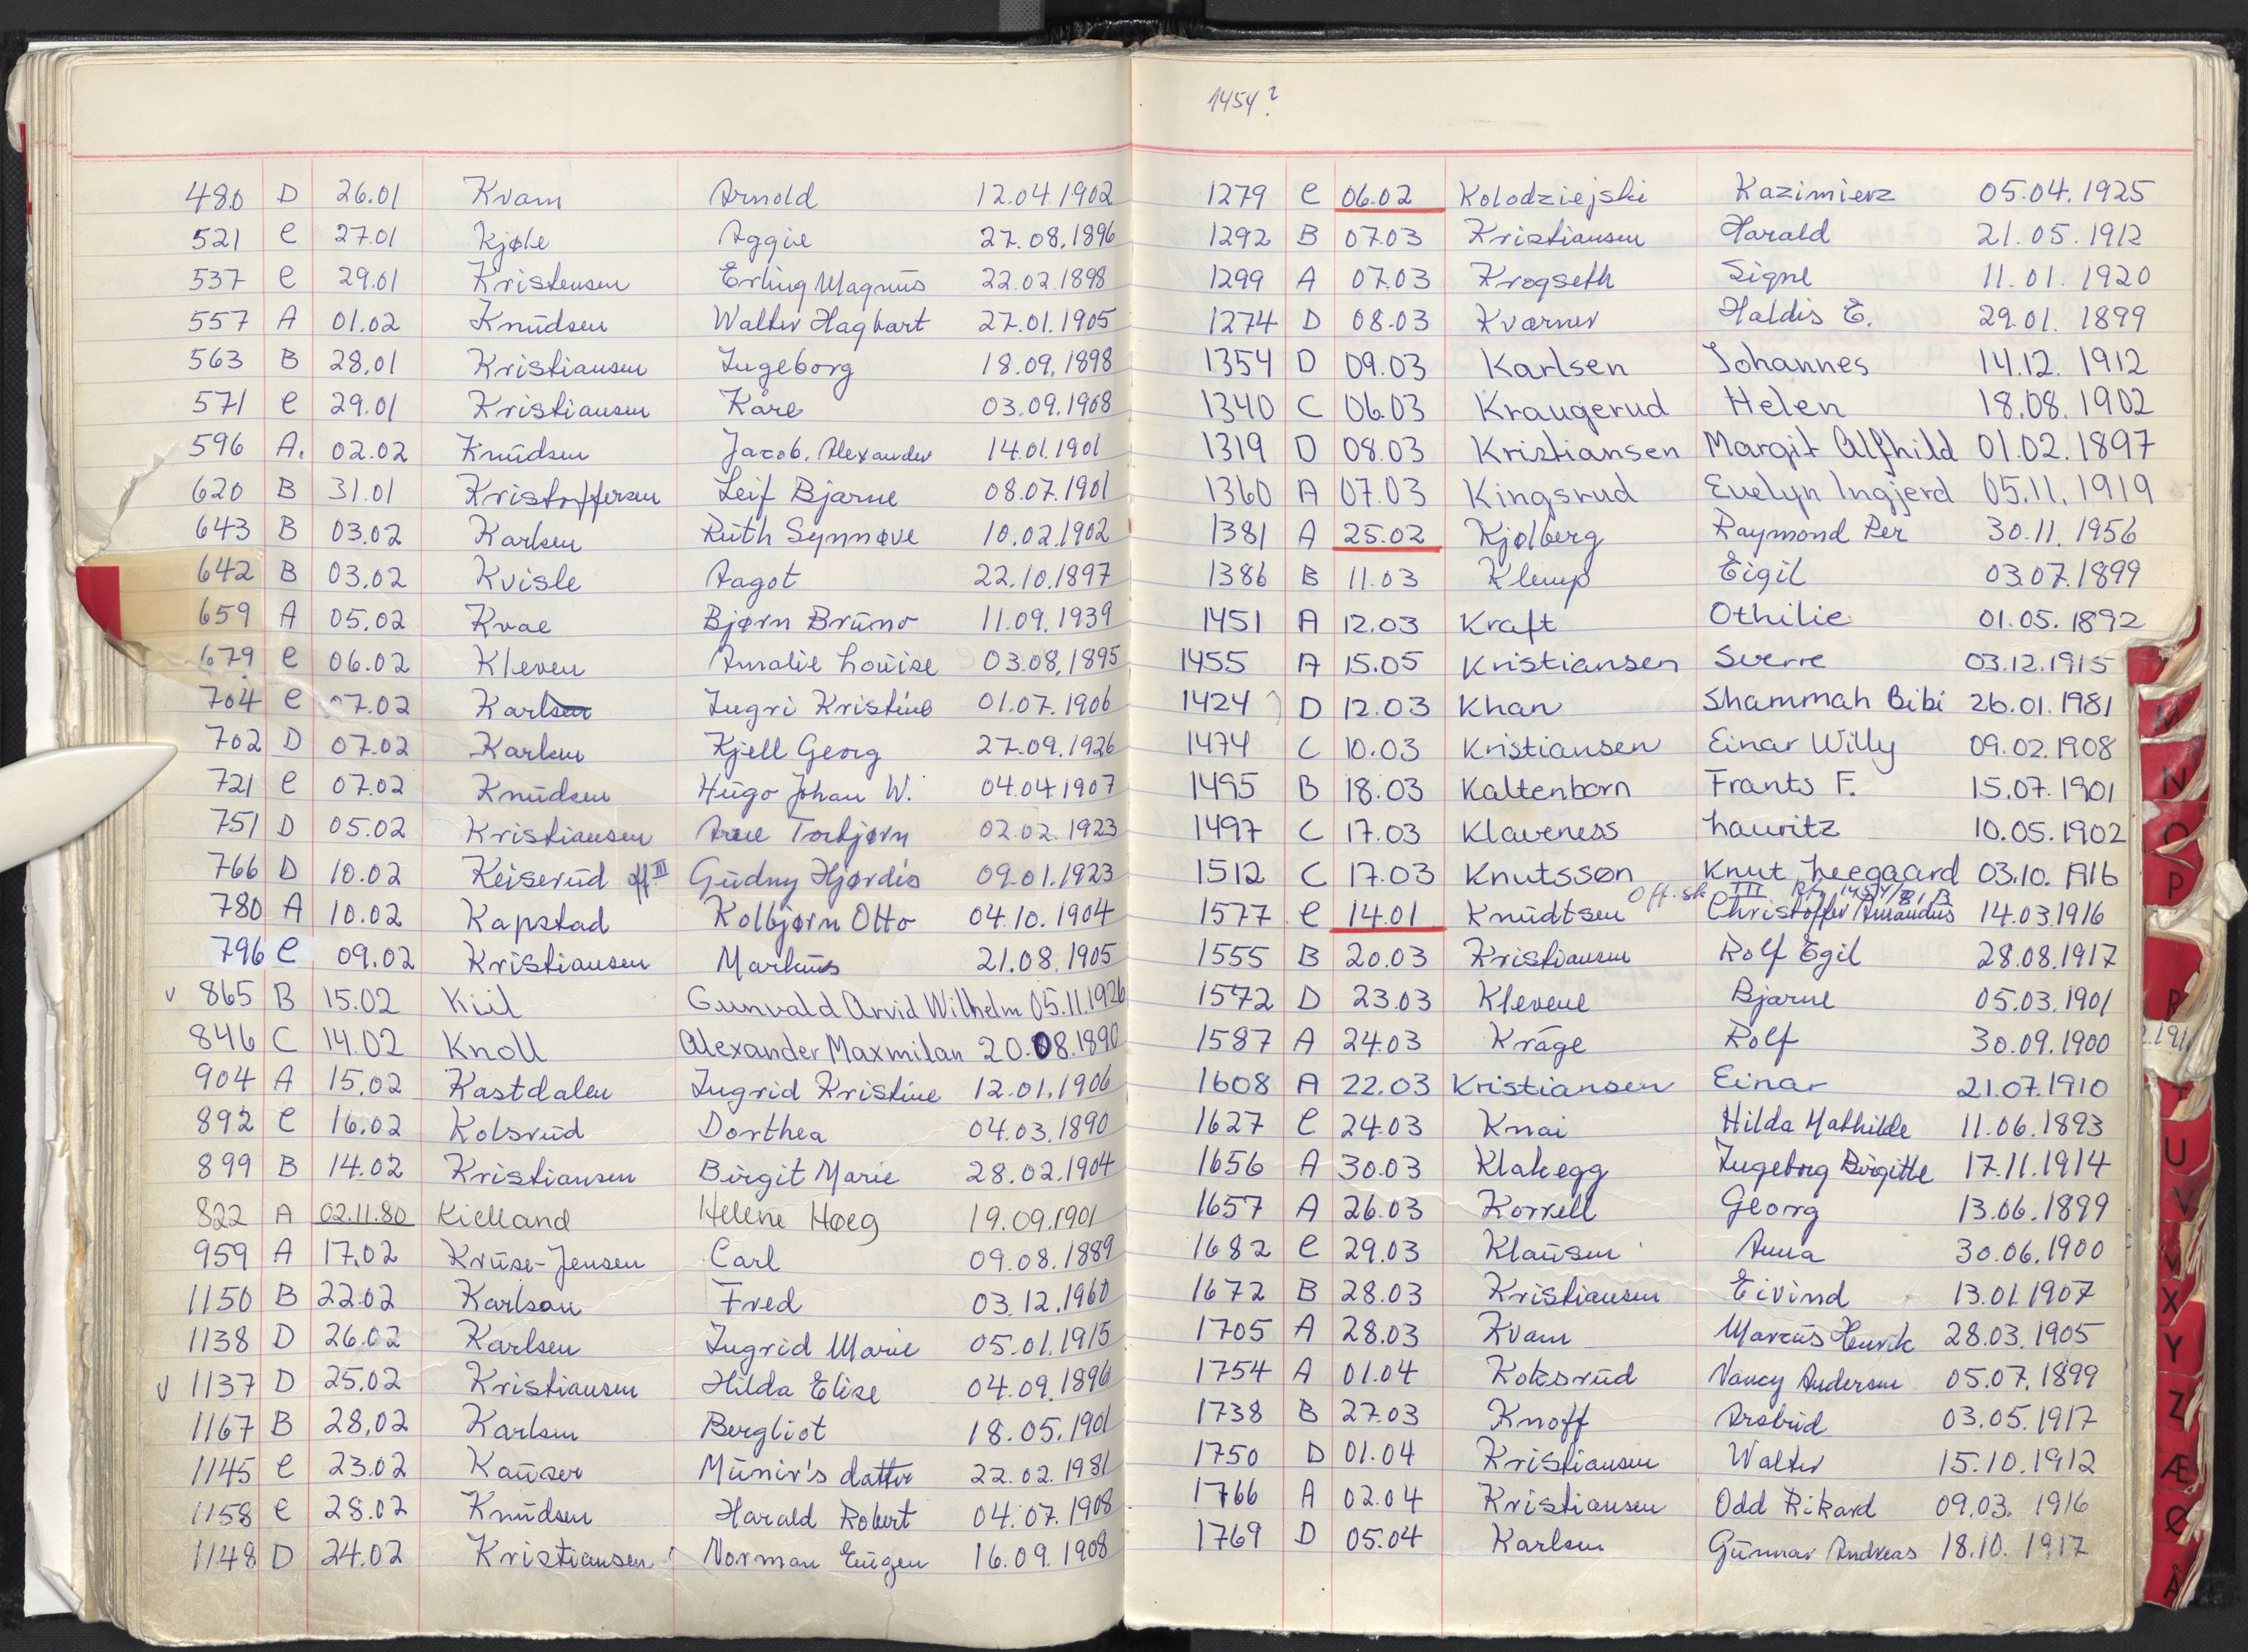 480 D 26.01 Kvam Arnold 12.04.1902
521 C 27.01 Kjøle Aggie 27.08.1896
537 C 29.01 Kristensen Erling Magnus 22.02.1898
557 A 01.02 Knudsen Walter Hagbart 27.01.1905
563 B 28.01 Kristiansen Ingeborg 18.09.1898
571 C 29.01 Kristiansen Kåre 03.09.1908
596 A. 02.02 Knudsen Jacob. Alexander 14.01.1901
620 B 31.01 Kristoffersen Leif Bjarne 08.07.1901
643 B 03.02 Karlsen Ruth Synnøve 10.02.1902
642 B 03.02 Kvisle Aagot 22.10.1897
659 A 05.02 Kvae Bjørn Bruno 11.09.1939
679 C 06.02 Kleven Amalie Louise 03.08.1895
704 C 07.02 Karlsen Ingri Kristine 01.07.1906
702 D 07.02 Karlsen Kjell Georg 27.09.1926
721 C 07.02 Knudsen Hugo Johan W. 04.04.1907
751 D 05.02 Kristiansen Arne Torbjørn 02.02.1923
766 D 10.02 Keiserud off III Gudny Hjørdis 09.01.1923
780 A 10.02 Kapstad Kolbjørn Otto 04.10.1904
796 C 09.02 Kristiansen Markus 21.08.1905
v 865 B 15.02 Kiil Gunvald Arvid Wilhelm 05.11.1926
846 C 14.02 Knoll Alexander Maxmilan 20.08.1890
904 A 15.02 Kastdalen Ingrid Kristine 12.01.1906
892 C 16.02 Kolsrud Dorthea 04.03.1890
899 B 14.02 Kristiansen Birgit Marie 28.02.1904
822 A 02.11.80 Kielland Helene Høeg 19.09.1901
959 A 17.02 Kruse-Jensen Carl 09.08.1889
1150 B 22.02 Karlson Fred 03.12.1960
1138 D 26.02 Karlsen Ingrid Marie 05.01.1915
v 1137 D 25.02 Kristiansen Hilda Elise 04.09.1896
1167 B 28.02 Karlsen Bergliot 18.05.1901
1145 C 23.02 Kauser Munir's datter 22.02.1981
1158 C 28.02 Knudsen Harald Robert 04.07.1908
1148 D 24.02 Kristiansen Norman Eugen 16.09.1908
1454?
1279 C 06.02 Kolodziejski Kazimierz 05.04.1925
1292 B 07.03 Kristiansen Harald 21.05.1912
1299 A 07.03 Krogseth Signe 11.01.1920
1274 D 08.03 Kværner Haldis E. 29.01.1899
1354 D 09.03 Karlsen Johannes 14.12.1912
1340 C 06.03 Kraugerud Helen 18.08.1902
1319 D 08.03 Kristiansen Margit Alfhild 01.02.1897
1360 A 07.03 Kingsrud Evelyn Ingjerd 05.11.1919
1381 A 25.02 Kjølberg Raymond Per 30.11.1956
1386 B 11.03 Klemp Eigil 03.07.1899
1451 A 12.03 Kraft Othilie 01.05.1892
1455 A 15.05 Kristiansen Sverre 03.12.1915
1424 D 12.03 Khan Shammah Bibi 26.01.1981
1474 C 10.03 Kristiansen Einar Willy 09.02.1908
1495 B 18.03 Kaltenborn Frants F. 15.07.1901
1497 C 17.03 Klaveness Lauritz 10.05.1902
1512 C 17.03 Knutsson Knut Leegaard 03.10.1916
Off. sk III
1577 C 14.01 Knudtsen Christoffer Amandus 14.03.1916
1555 B 20.03 Kristiansen Rolf Egil 28.08.1917
1572 D 23.03 Klevene Bjarne 05.03.1901
1587 A 24.03 Kråge Rolf 30.09.1900
1608 A 22.03 Kristiansen Einar 21.07.1910
1627 C 24.03 Knai Hilda Mathilde 11.06.1893
1656 A 30.03 Klakegg Ingeborg Birgitte 17.11.1914
1657 A 26.03 Korrell Georg 13.06.1899
1682 C 29.03 Klausen Anna 30.06.1900
1672 B 28.03 Kristiansen Eivind 13.01.1907
1705 A 28.03 Kvam Marcus Henrik 28.03.1905
1754 A 01.04 Koksrud Nancy Andersen 05.07.1899
1738 B 27.03 Knoff 03.05.1917
1750 D 01.04 Kristiansen Walter 15.10.1912
1766 A 02.04 Kristiansen Odd Rikard 09.03.1916
1769 D 05.04 Karlsen Gunnar Andreas 18.10.1917
N
O
P
R
T
U
V
W
X
Y
Z
Æ
Ø
Å